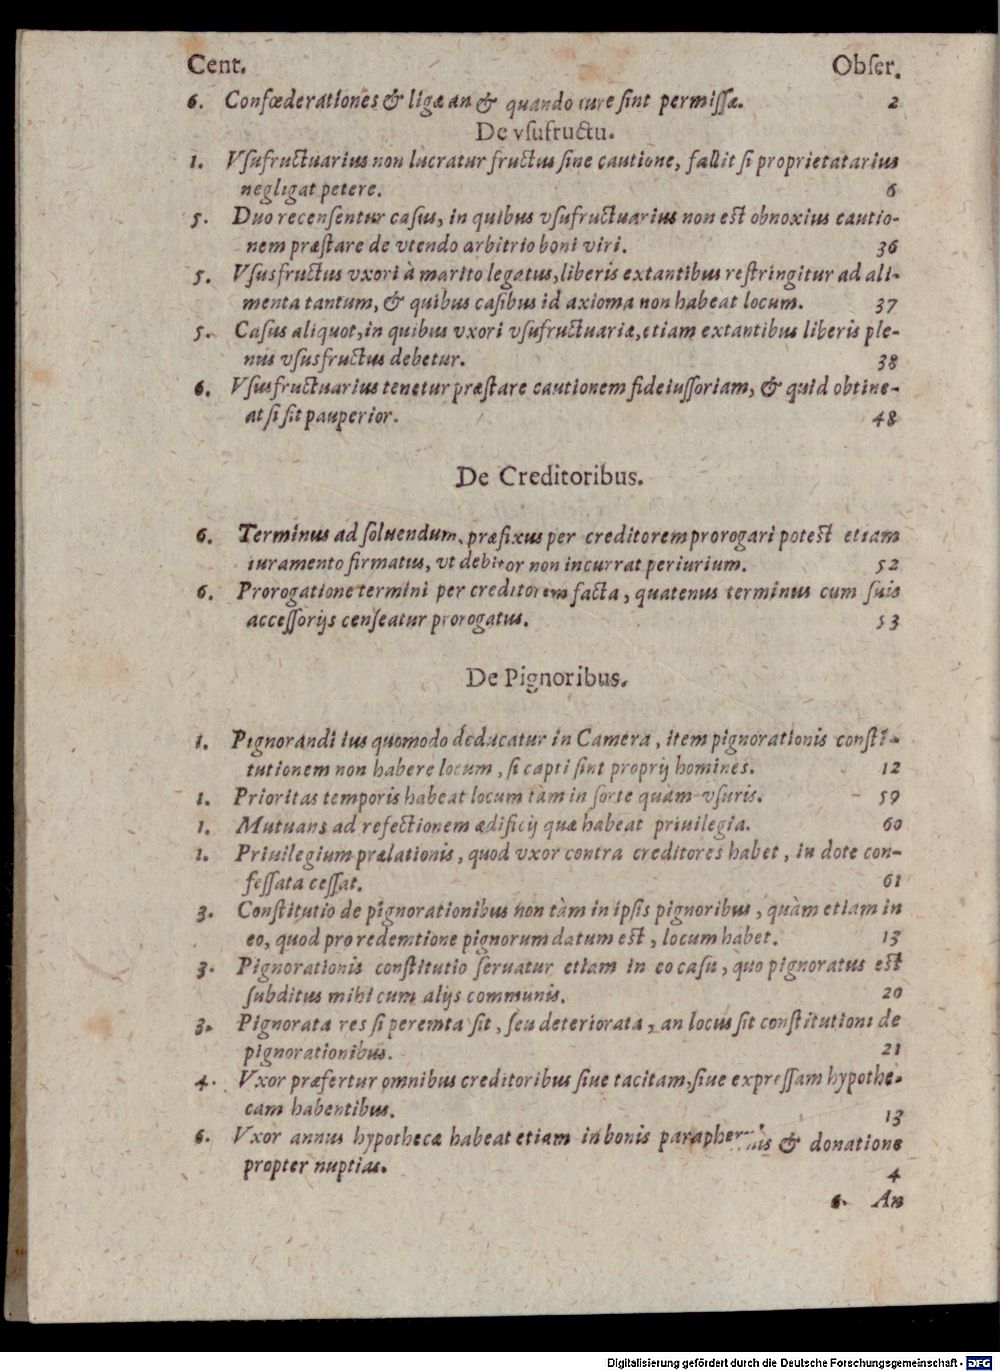 Cent. Obſer.
6. Confœderationes & ligæ an & quando iure ſint permiſſæ. 2
De vſufructu.
1. Vſufructuarius non lucratur fructus ſine cautione, fallit ſi proprietatarius
negligat petere. 6
5. Duo recenſentur caſus, in quibus vſufructuarius non eſt obnoxius cautio-
nem præſtare de vtendo arbitrio boni viri. 36
5. Vſusfructus vxori à marito legatus, liberis extantibus reſtringitur ad ali-
menta tantum, & quibus caſibus id axioma non habeat locum. 37
5. Caſus aliquot, in quibus vxori vſufructuariæ, etiam extantibus liberis ple-
nus vſusfructus debetur. 38
6. Vſusfructuarius tenetur præſtare cautionem fideiuſſoriam, & quid obtine-
at ſi ſit pauperior. 48
De Creditoribus.
6. Terminus ad ſoluendum, præfixus per creditorem prorogari poteſt etiam
iuramento firmatus, vt debitor non incurrat periurium. 52
6. Prorogatione termini per creditorem facta, quatenus terminus cum ſuis
acceſſorijs cenſeatur prorogatus. 53
De Pignoribus.
1. Pignorandi ius quomodo deducatur in Camera, item pignorationis conſti-
tutionem non habere locum, ſi capti ſint proprij homines. 12
1. Prioritas temporis habeat locum tàm in ſorte quàm vſuris. 59
1. Mutuans ad refectionem ædificij quæ habeat priuilegia. 60
1. Priuilegium prælationis, quod vxor contra creditores habet, in dote con-
feſſata ceſſat. 61
3. Conſtitutio de pignorationibus non tàm in ipſis pignoribus, quàm etiam in
eo, quod pro redemtione pignorum datum eſt, locum habet. 13
3. Pignorationis conſtitutio ſeruatur etiam in eo caſu, quo pignoratus eſt
ſubditus mihi cum alijs communis. 20
3. Pignorata res ſi peremta ſit, ſeu deteriorata, an locus ſit conſtitutioni de
pignorationibus. 21
4. Vxor præfertur omnibus creditoribus ſiue tacitam, ſiue expreſſam hypothe-
cam habentibus. 13
6. Vxor annus hypothecæ habeat etiam in bonis & donatione
propter nuptias. 4
6. An
Digitalisierung gefördert durch die Deutsche Forschungsgemeinschaft - DFG